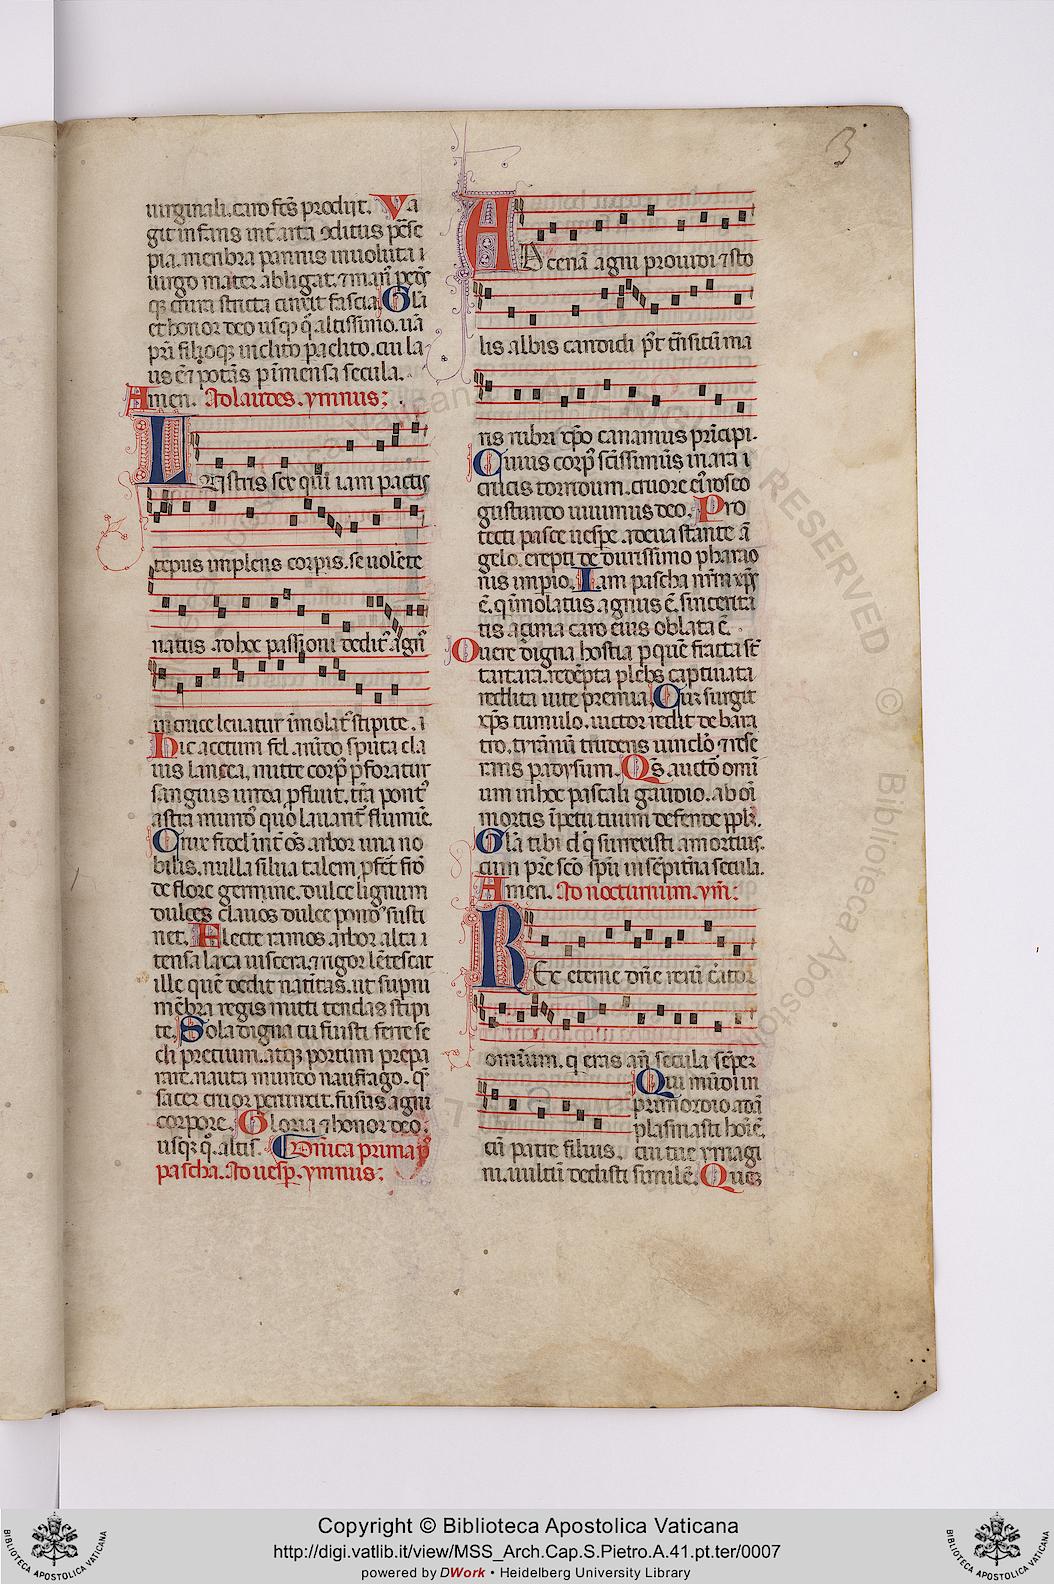 3
uirginali. caro fcs̄ prodijt. Va
git infans int̄ arta ↄditus p̄se
pia. menbra pannis inuoluta
uirgo mater alligat. ⁊ man̄ pedes
q; crura stricta cingit fascia. Gl̄a
et honor deo usq; q̄ altissimo. un̄a
pr̄i filioq; inclito paclito. cui la
us ē ⁊ potās p̄ imensa secula.
Amen. Ad laudes. ymnus:
Lustris sex qui iam pactis
tepus implens corpis. se uolēte
natus. ad hoc passioni dedit᾽ agn᾽
in cruce leuatur īmolat᾽ stipite.
Hic acetum fel arūdo sputa cla
uis lancea. mitte corp᾽ pforatur
sanguis unda pfluit. t̄ra pont᾽
astra mund᾽ quo lauant᾽ flumīe.
Crux fidel᾽ int᾽ os̄. arbor una no
bilis. nulla silua talem p̄fert frō
de flore germine. dulce lignum
dulces clauos dulce pond᾽ susti
net. Flecte ramos arbor alta
tensa laxa uiscera. ⁊ rigor lētescat
ille quē dedit natiuitas. ut supni
mēbra regis miti tendas stipi
te. Sola digna tu fuisti ferre se
cli precium. atq; portum prepa
rare. nauta mundo naufrago. q̄
sacer cruor perunxit. fusus agni
corpore. Gloria ⁊ honor deo
usq; q̄. altis. Dn̄ica prima p᾽
pascha. Ad uesp. ymnus:
AD cenā agni prouidi ⁊ sto
lis albis candidi p᾽t trāsitū ma
ris rubri xp̄o canamus prīcipi.
Cuius corp᾽ sc̄issimū in ara
crucis torridum. cruore ei᾽ roseo
gustando uiuimus deo. Pro
tecti pasce uespe. a deuastante ā
gelo. erepti de durissimo pharao
nis impio. Iam pascha nr̄m xp̄s
ē. q̄ imolatus agnus ē. sincerita
tis açima caro eius oblata ē.
O uere digna hostia p quē fracta st̄
tartara. redēpta plebs captiuata
reddita uite premia. Cū surgit
xp̄s tumulo. uictor redit de bara
tro. tyrannū trudens uinclo ⁊ rese
rans padysum. Qs̄ auctō omī
um in hoc pascali gaudio. ab oī
mortis īpetu tuum defende pplm̄.
Gl̄a tibi dn̄e q surrexisti a mortuis.
cum pr̄e sc̄o spū in sēpit̄na secula.
Amen. Ad nocturnum. ym̄:
REx eterne dn̄e rerū c̄ator
omnium. q eras an̄ secula sēper
cū patre filius.
Qui mūdi in
primordio adā
plasmasti hoīē.
cui tue ymagi
ni. uultū dedisti similē. Quez
Copyright © Biblioteca Apostolica Vaticana
http://digi.vatlib.it/view/MSS_Arch.Cap.S.Pietro.A.41.pt.ter/0007
powered by DWork • Heidelberg University Library